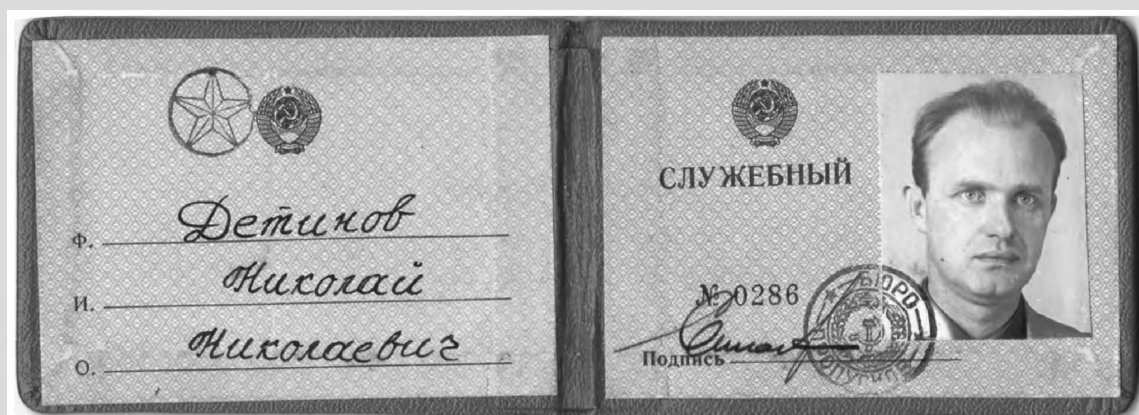 Ф. Детинов
И. Николай
О. Николаевич
СЛУЖЕБНЫЙ
№ 0286
Подпись
БЮРО